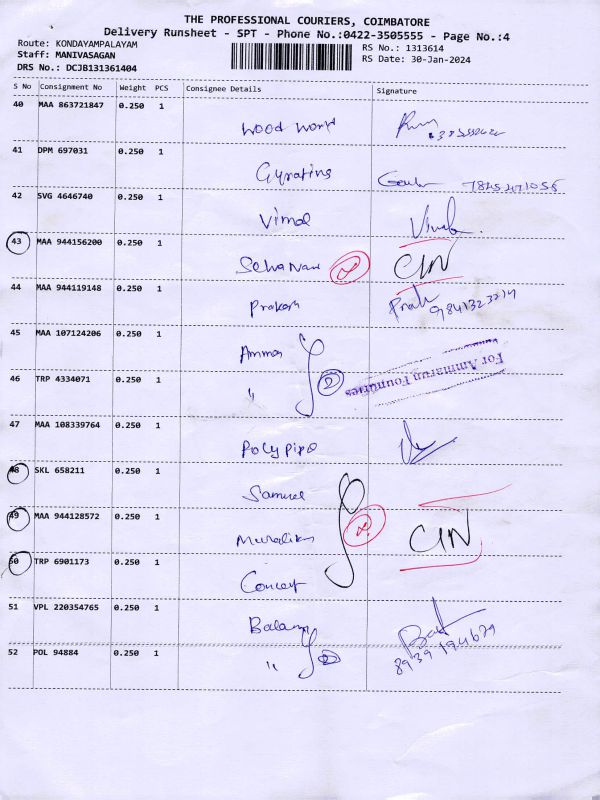 THE PROFESSIONAL COURIERS, COIMBATORE
Delivery Runsheet - SPT - Phone No.:0422-3505555 - Page No.:4
Route: KONDAYAMPALAYAM
Staff: MANIVASAGAN
DRS No.: DCJB131361404
RS No.: 1313614
RS Date: 30-Jan-2024
S No Consignment No Weight PCS Consignee Details Signature
40 MAA 863721847 0.250 1
Wood World
41 DPM 697031 0.250 1
42 SVG 4646740 0.250 1
Vimal
43 MAA 944156200 0.250 1
CIN
44 MAA 944119148 0.250 1
Prakash 9841323214
45 MAA 107124206 0.250 1
2
For Ammarun Foundries
46 TRP 4334071 0.250 1
"
47 MAA 108339764 0.250 1
Polypipe
48 SKL 658211 0.250 1
Samuel
49 MAA 944128572 0.250 1
CIN
50 TRP 6901173 0.250 1
51 VPL 220354765 0.250 1
Balaji
52 POL 94884 0.250 1
" 2 8939194679